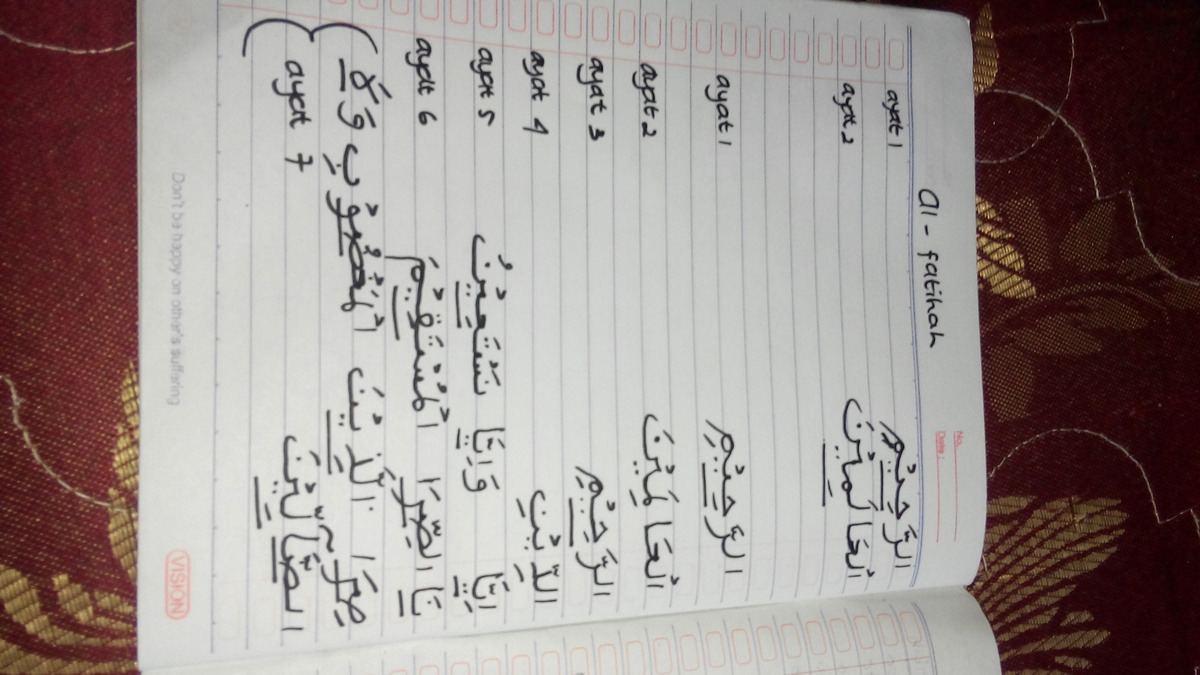 No.
Date:
al - fatihah
ayat 1 الرَّحِيْمِ
ayat 2 الْعَالَمِيْنَ
ayat 1 الرَّحِيْمِ
ayat 2 الْعَالَمِيْنَ
ayat 3 الرَّحِيْمِ
ayat 4 الدِّيْنِ
ayat 5 اِيَّا وَاِيَّا نَسْتَعِيْنُ
ayat 6 نَا الصِّرَا الْمُسْتَقِيْمَ
صِرَا الَّذِيْنَ الْمَغْضُوْبِ وَلَا
ayat 7 الضَّآلِّيْنَ
Don't be happy on other's suffering
VISION